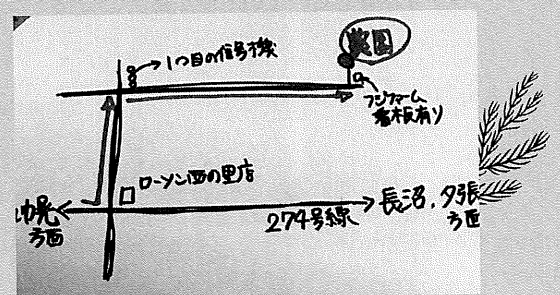 1つ目の信号機
フジファーム
看板有り
ローソン西の里店
札幌
方面
274号線
長沼、夕張
方面